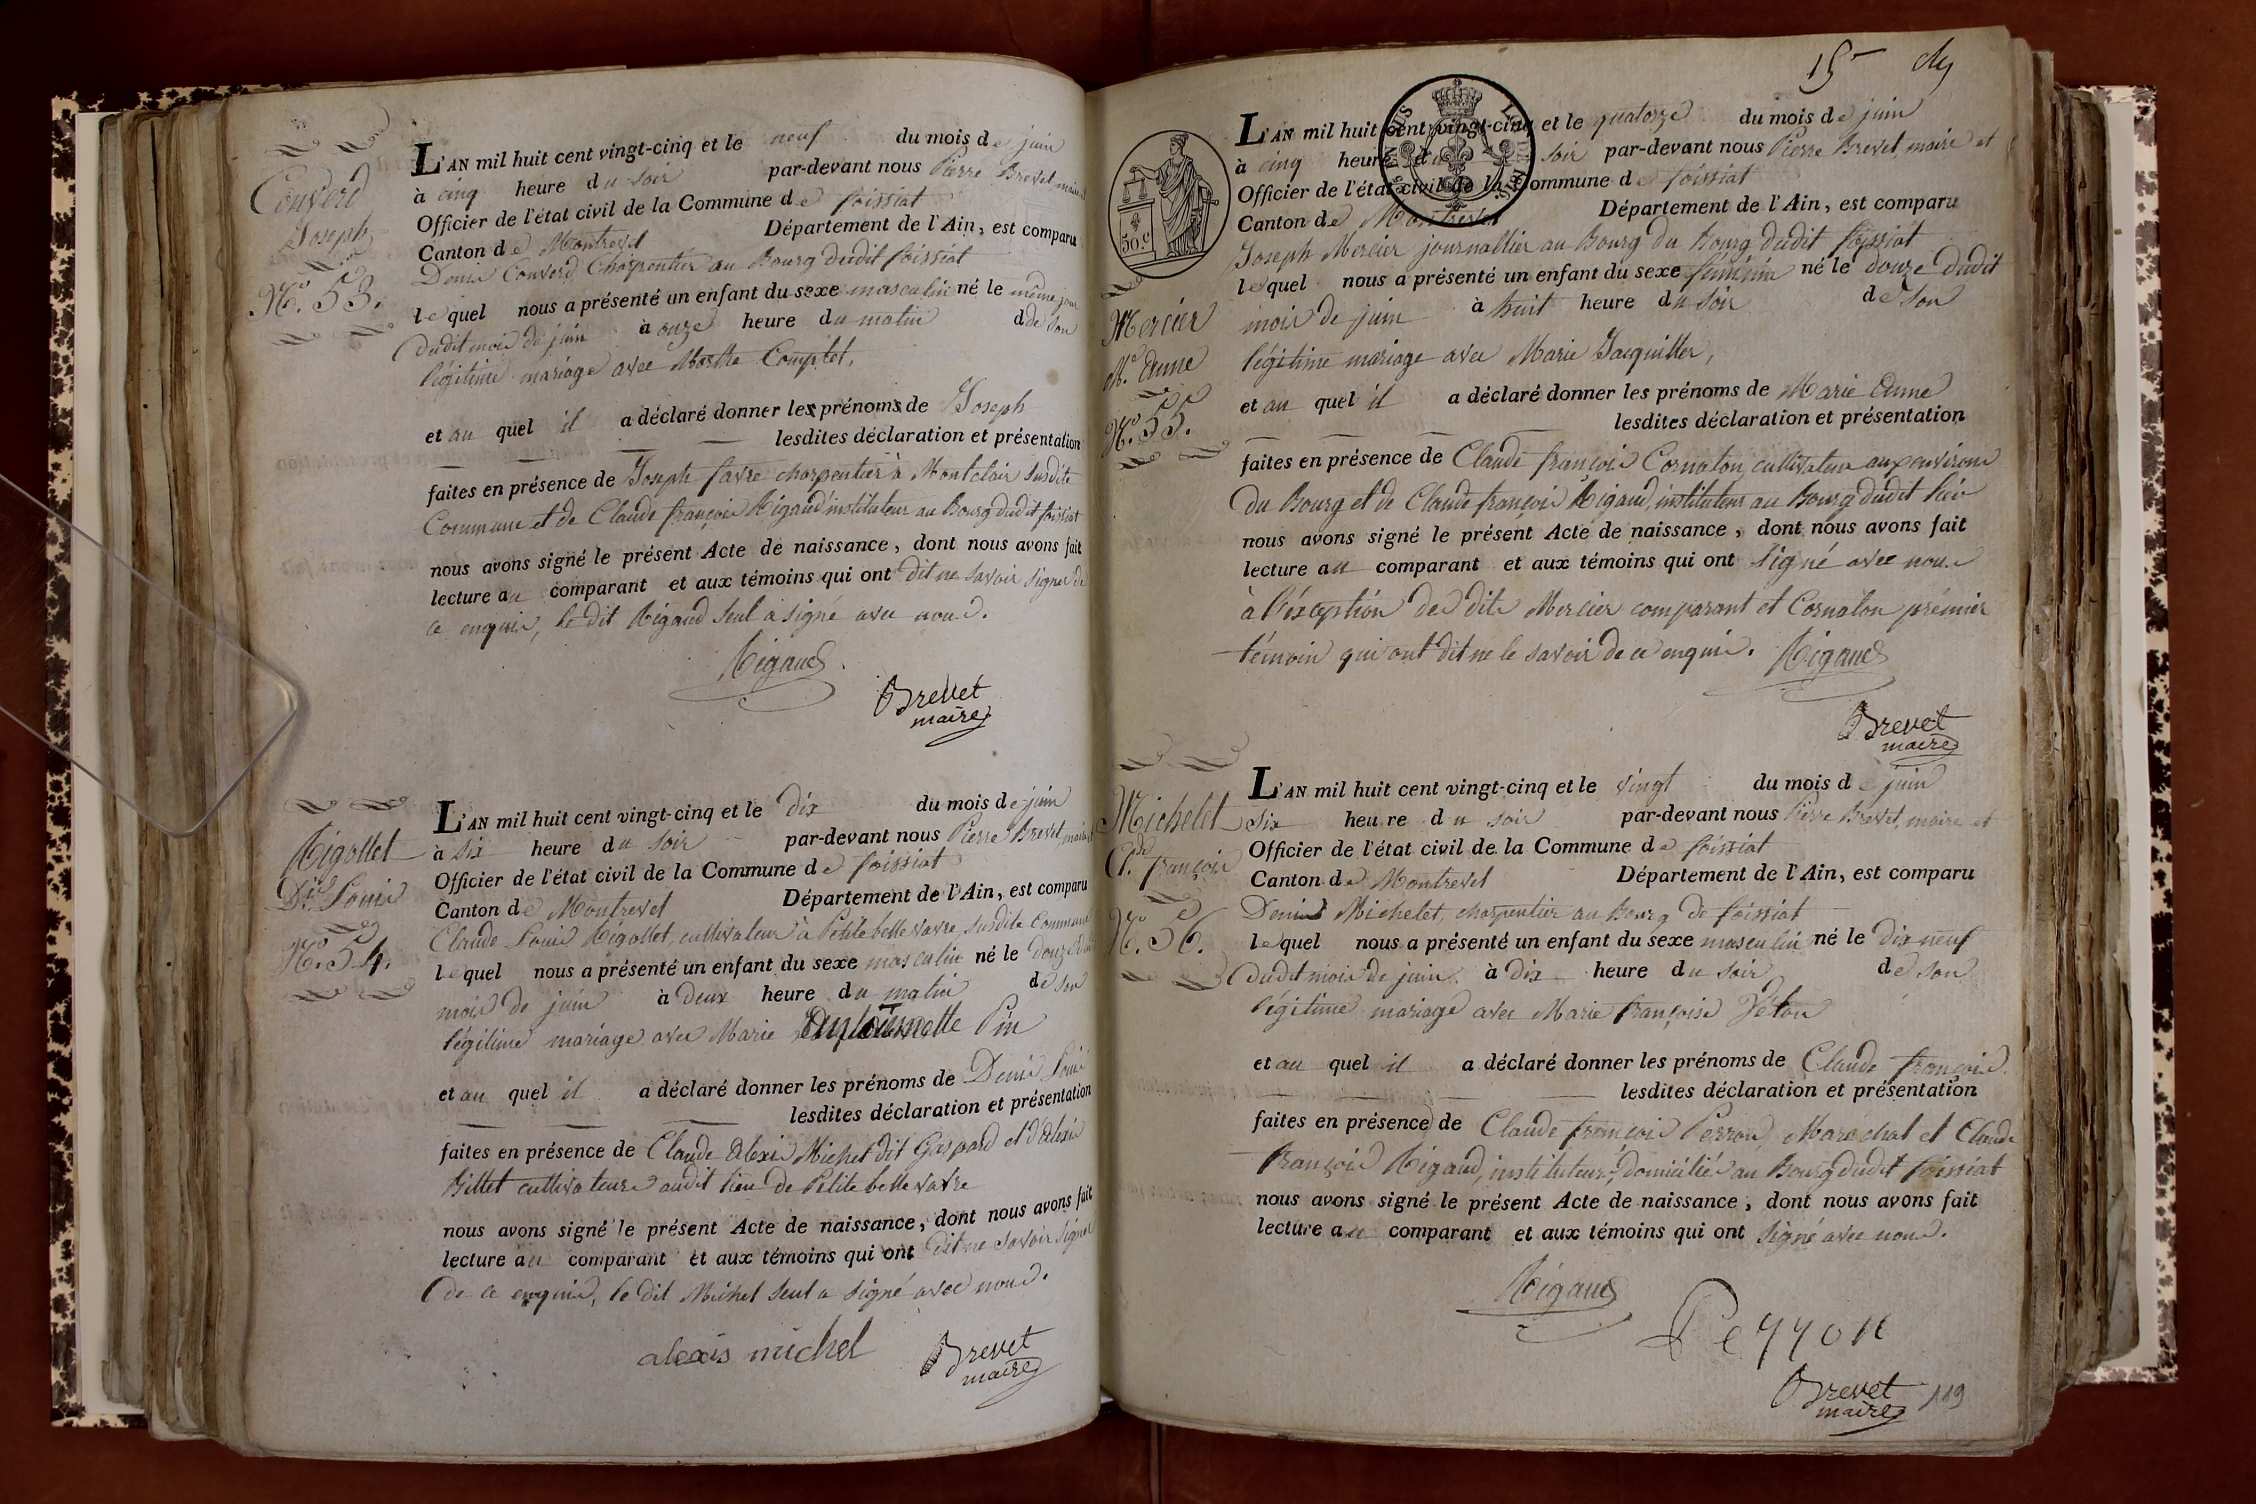 Converd
Joseph
N.º 53.
L'AN mil huit cent vingt-cinq et le neuf du mois de juin
à cinq heure du soir par-devant nous Pierre Brevet maire
Officier de l'état civil de la Commune de foissiat
Canton de Montrevel Département de l'Ain, est comparu
Denis Converd Charpentier au Bourg dudit foissiat
lequel nous a présenté un enfant du sexe masculin né le même jour
dudit mois de juin à onze heure du matin d de son
légitime mariage avec Marthe Complet,
et au quel il a déclaré donner les prénoms de Joseph
lesdites déclaration et présentation
faites en présence de Joseph favre charpentier à Montclair susdite
Commune et de Claude françois Rigaud instituteur au Bourg dudit foissiat
nous avons signé le présent Acte de naissance, dont nous avons fait
lecture au comparant et aux témoins qui ont dit ne savoir signer de
ce enquis, le dit Rigaud seul a signé avec nous.
Rigaud
Brevet
maire
Rigollet
Dis Louis
N.º 54.
L'AN mil huit cent vingt-cinq et le dix du mois de juin
à six heure du soir par-devant nous Pierre Brevet, maire
Officier de l'état civil de la Commune de foissiat
Canton de Montrevel Département de l'Ain, est comparu
Claude Louis Rigollet, cultivateur à Petite belle vavre, susdite Commune
lequel nous a présenté un enfant du sexe masculin né le
mois de juin à deux heure du matin de son
légitime mariage avec Marie Antoinette Pin
et au quel il a déclaré donner les prénoms de Denis Louis
lesdites déclaration et présentation
faites en présence de Claude Alexis Michel dit Gaspard et d'Alexis
Billet cultivateurs audit lieu de Petite belle vavre
nous avons signé le présent Acte de naissance, dont nous avons fait
lecture au comparant et aux témoins qui ont dit ne savoir signer
de ce enquis, le dit Michel seul a signé avec nous.
alexis michel
Brevet
maire
15
50 c
Mercier
M.e Anne
N.º 55.
L'AN mil huit cent vingt-cinq et le quatorze du mois de juin
à cinq heure du soir par-devant nous Pierre Brevet, maire et
Officier de l'état civil de la Commune de foissiat
Canton de Montrevel Département de l'Ain, est comparu
Joseph Mercier journallier au Bourg du Bourg dudit foissiat
lequel nous a présenté un enfant du sexe féminin né le douze dudit
mois de juin à huit heure du soir de son
légitime mariage avec Marie Jacquiller,
et au quel il a déclaré donner les prénoms de Marie Anne
lesdites déclaration et présentation
faites en présence de Claude françois Cornaton, cultivateur aux environs
du Bourg et de Claude françois Rigaud, instituteur au Bourg dudit lieu
nous avons signé le présent Acte de naissance, dont nous avons fait
lecture au comparant et aux témoins qui ont signé avec nous
à l'éxception des dits Mercier comparant et Cornaton prémier
témoin qui ont dit ne le savoir de ce enquis.
Rigaud
Brevet
maire
Michelet
Cl.de françois
N.º 56.
L'AN mil huit cent vingt-cinq et le vingt du mois de juin
six heure du soir par-devant nous Pierre Brevet, maire et
Officier de l'état civil de la Commune de foissiat
Canton de Montrevel Département de l'Ain, est comparu
Denis Michelet, charpentier au Bourg de foissiat
lequel nous a présenté un enfant du sexe masculin né le dix neuf
dudit mois de juin à dix heure du soir de son
légitime mariage avec Marie françoise Véton
et au quel il a déclaré donner les prénoms de Claude françois.
lesdites déclaration et présentation
faites en présence de Claude françois Perron, Maréchal et Claude
françois Rigaud, instituteur, domiciliés au Bourg dudit foissiat
nous avons signé le présent Acte de naissance, dont nous avons fait
lecture au comparant et aux témoins qui ont signé avec nous.
Rigaud
Perron
Brevet
maire
119